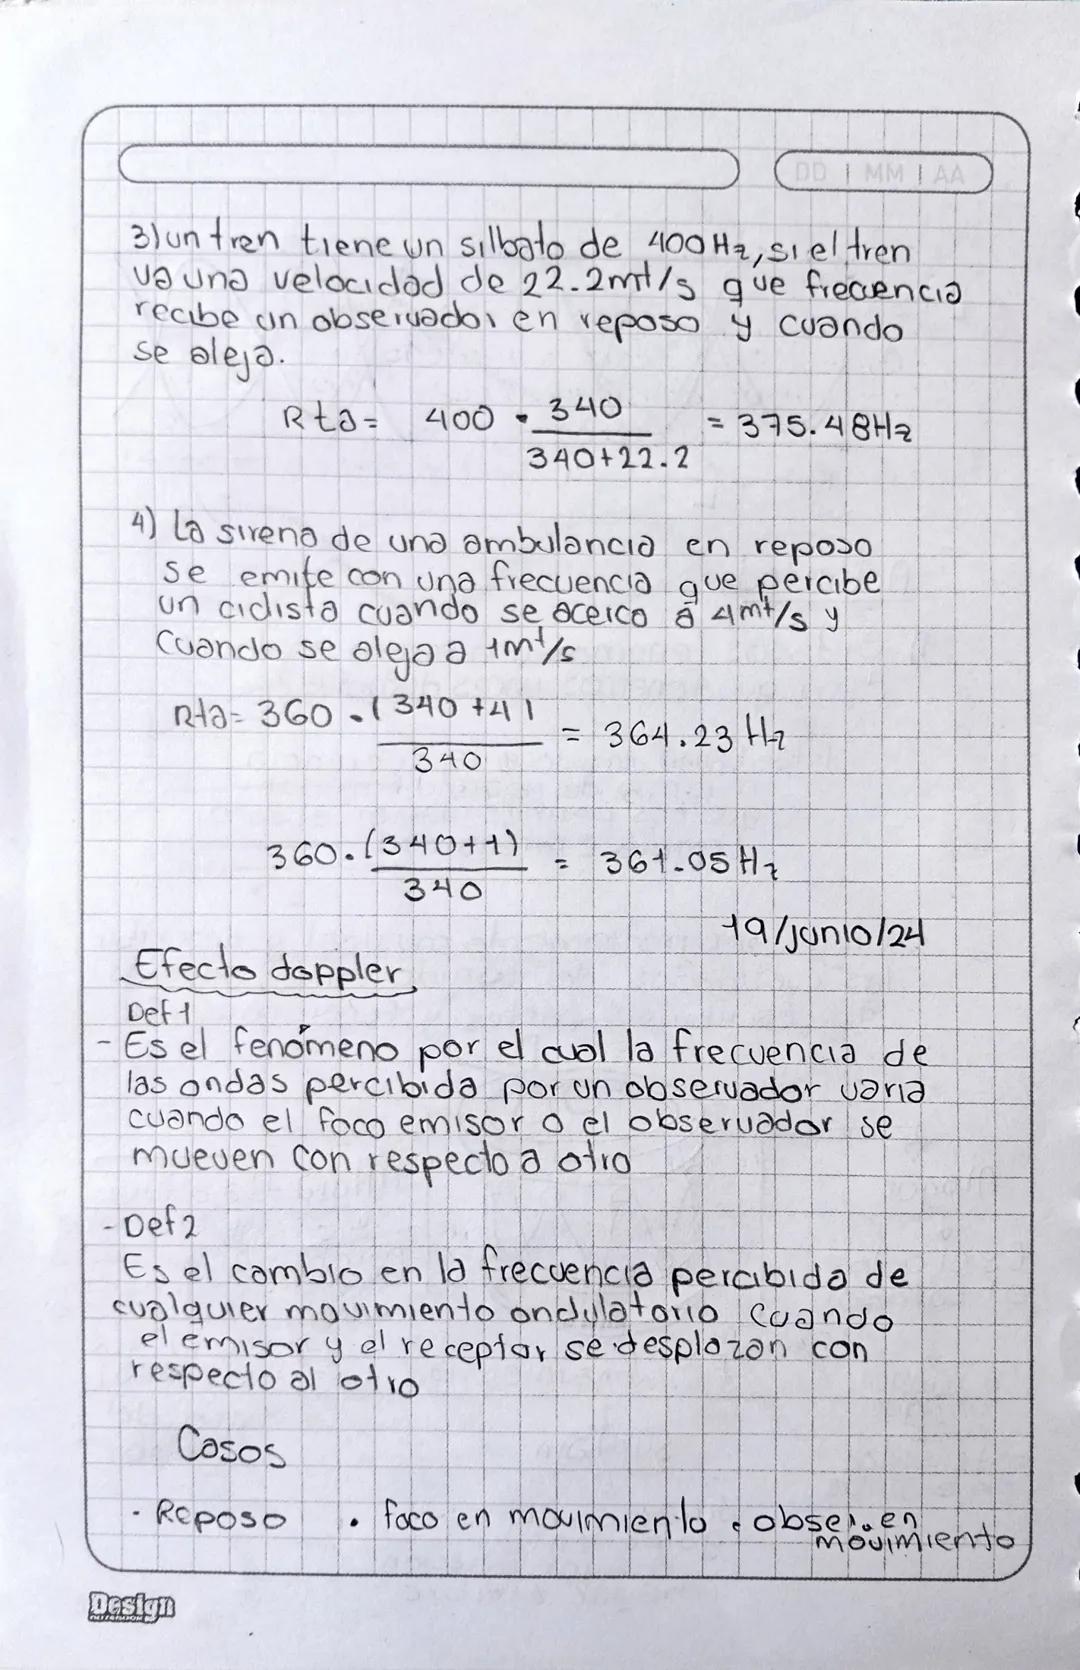 DD | MM | AA
3) un tren tiene un silbato de 400 Hz, si el tren
va una velocidad de 22.2mt/s que frecuencia
recibe un observador en reposo y cuando
se aleja.
Rta= 400 · 340 / 340+22.2 = 375.48Hz
4) La sirena de una ambulancia en reposo
se emite con una frecuencia que percibe
un ciclista cuando se acerco a 4mt/s y
Cuando se aleja a 1mt/s
Rta= 360 · (340 +4) / 340 = 364.23 Hz
360 · (340+1) / 340 = 361.05 Hz
19/junio/24
Efecto doppler
Def 1
- Es el fenómeno por el cual la frecuencia de
las ondas percibida por un observador varia
cuando el foco emisor o el observador se
mueven con respecto a otro
- Def 2
Es el cambio en la frecuencia percibida de
cualquier movimiento ondulatorio cuando
el emisor y el receptor se desplazan con
respecto al otro
Casos
· Reposo · foco en movimiento · obser. en
movimiento
Design